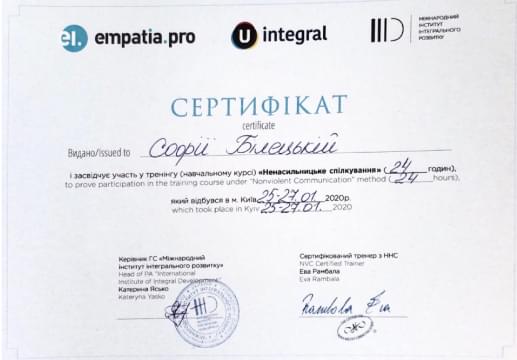 el. empatia.pro
U integral
МІЖНАРОДНИЙ
ІНСТИТУТ
ІНТЕГРАЛЬНОГО
РОЗВИТКУ
СЕРТИФІКАТ
certificate
Видано/Issued to Софії Білецькій
і засвідчує участь у тренінгу (навчальному курсі) «Ненасильницьке спілкування» (24 годин),
to prove participation in the training course under "Nonviolent Communication" method (24 hours),
який відбувся в м. Київ 25-27.01. 2020р.
which took place in Kyiv 25-27.01. 2020
Керівник ГС «Міжнародний
інститут інтегрального розвитку»
Head of PA "International
Institute of Integral Development"
Катерина Ясько
Kateryna Yasko
Сертифікований тренер з ННС
NVC Certified Trainer
Ева Рамбала
Eva Rambala
Rambala Eva